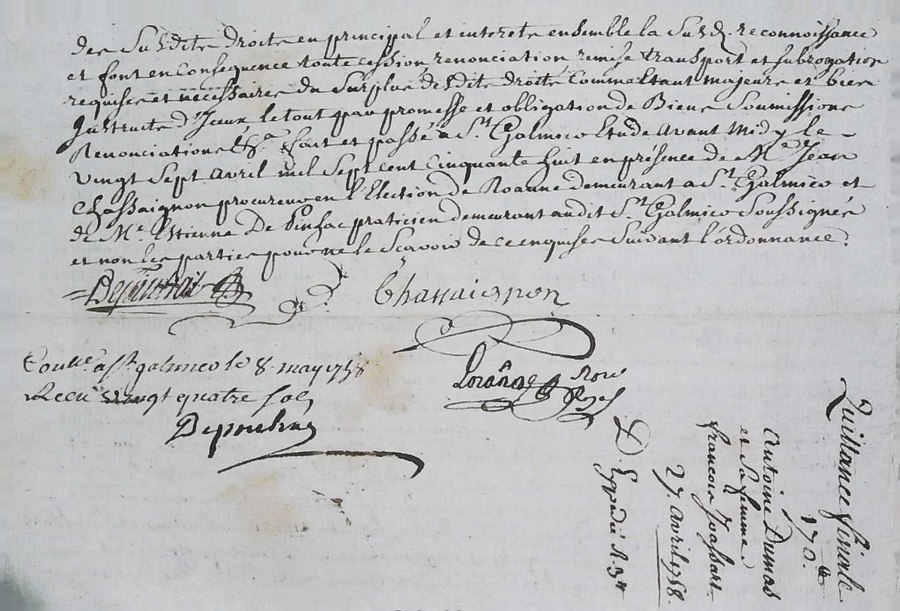 des Susdits droits en principal et interets ensemble la Susd. reconnoissance
et font en Consequence toutte cession renonciation remise transport et subrogation
requises et necessaires du Surplus desdits droits Comme Etant majeurs et bien
Instruits d'Iceux le tout par promesse et obligation de Biens Soumissions
Renonciations &a. fait et passé a St. Galmier Etude avant midy le
vingt Sept avril mil Sept cent Cinquante huit en présence de Me. Jean
Chassaignon procureur en l'Election de Roanne demeurant a St. Galmier et
de Me. Estienne De praticien demeurant audit St. Galmier Soussignés
et non les parties pour ne le Scavoir de ce enquises Suivant l'ordonnance.
Chassaignon
Conllé. a St. galmier le 8. may 1758
Recu vingt quatre sols
Ponchon
Quittance finale
170.tt
Antoine Dumas
et Sa femme
francois
27. avril 1758.
D. Expedié